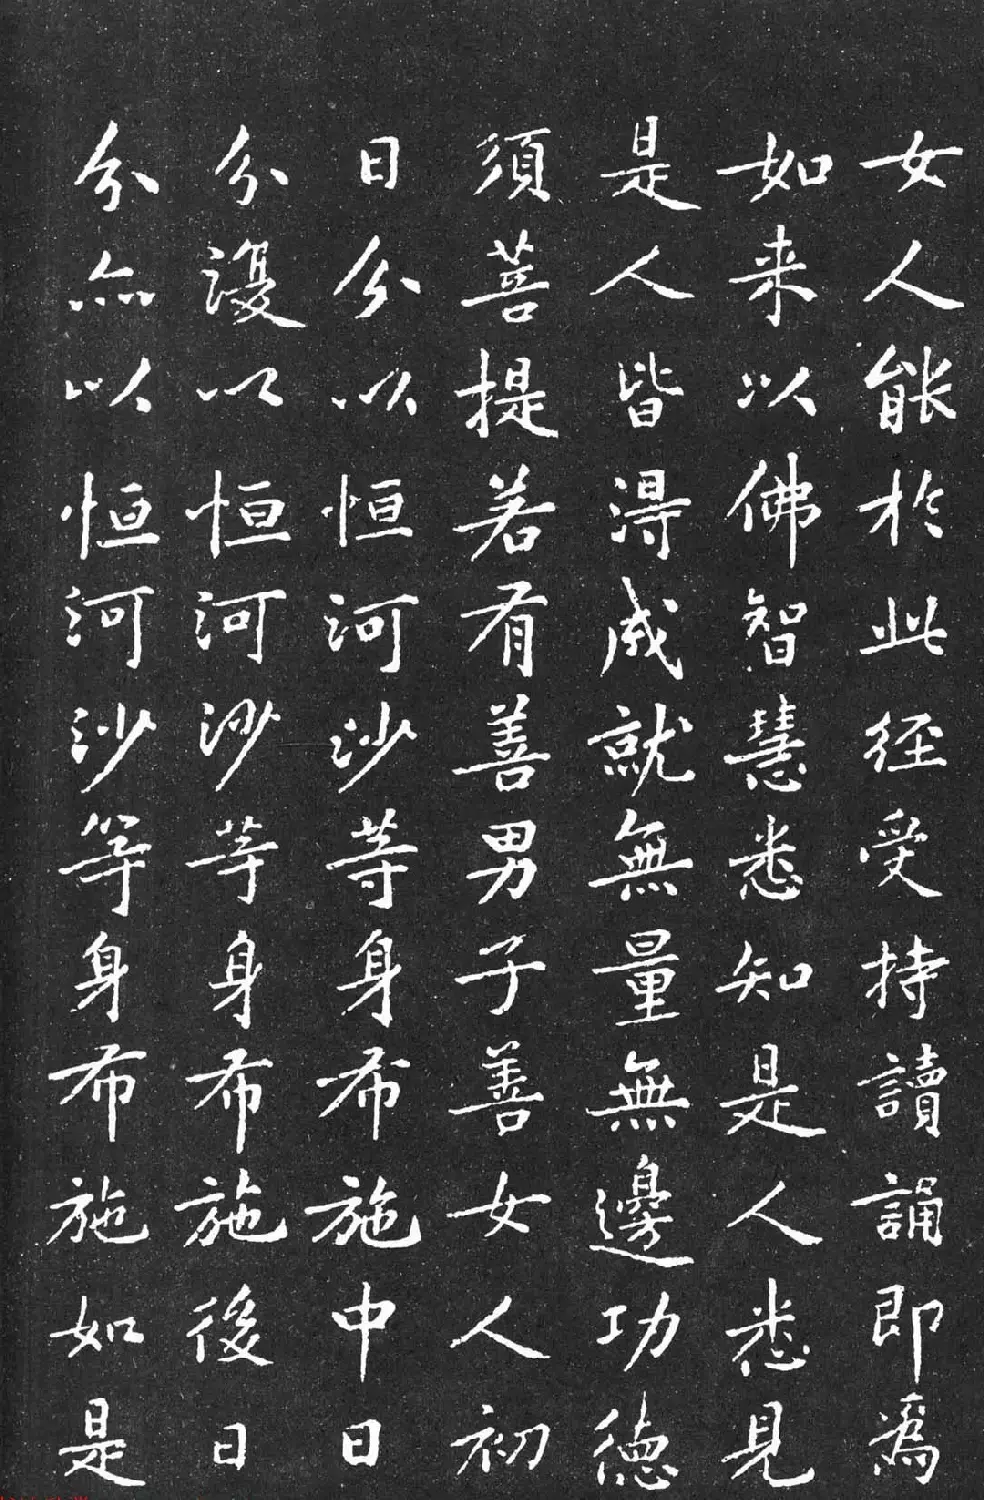 女人能於此径受持讀誦即爲
如来以佛智慧悉知是人悉見
是人皆得成就無量無邊功德
須菩提若有善男子善女人初
日分以恒河沙等身布施中日
分復以恒河沙等身布施後日
分亦以恒河沙等身布施如是